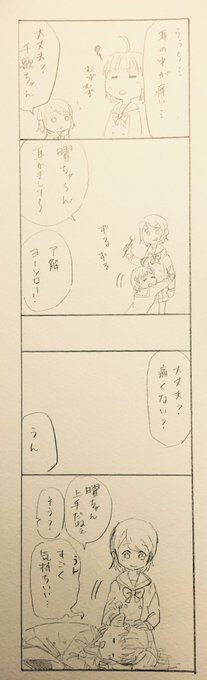 ううぅ…
耳の中が痛い…
むずむず
大丈夫？
千歌ちゃん
曜ちゃーん
耳かきしてぇ
ずる
ずる
了解
ヨーソロー！
大丈夫？
痛くない？
うん
曜ちゃん
上手だねぇ
そう？
うん
すごく
気持ちいい…